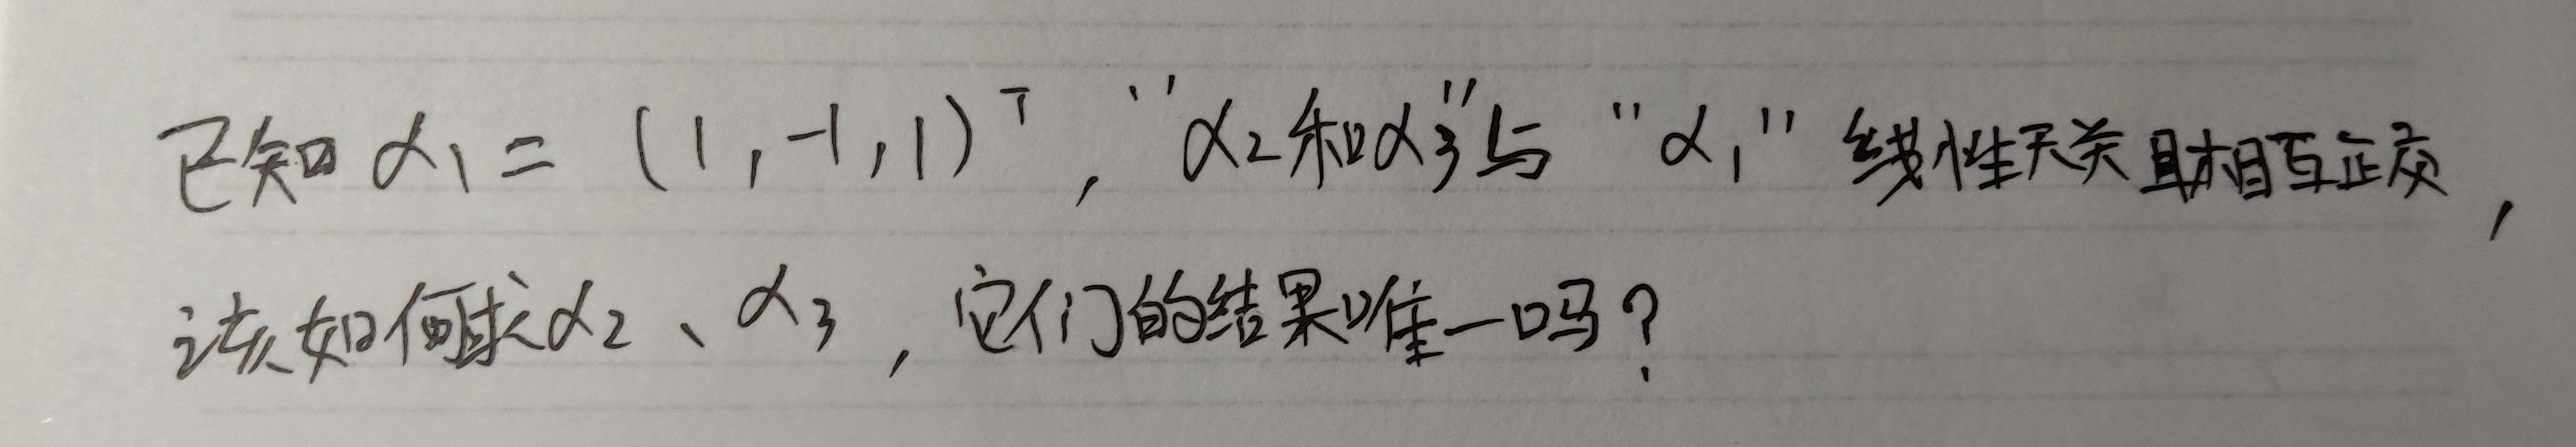 已知α₁=(1,-1,1)ᵀ,"α₂和α₃"与"α₁"线性无关且相互正交,
该如何求α₂、α₃,它们的结果唯一吗?